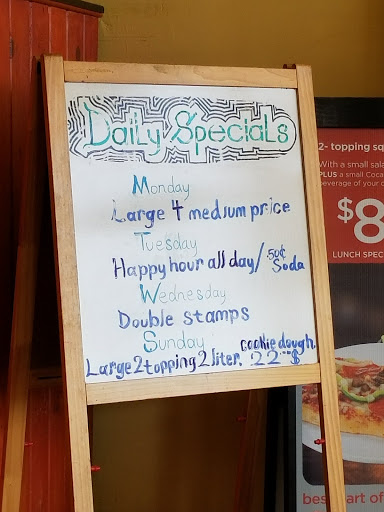 Daily Specials
Monday
Large 4 medium price
Tuesday
Happy hour all day/ .50¢
Soda
Wednesday
Double stamps
Sunday
cookie dough.
Large 2 topping 2 liter. 22.$
2- topping sq
With a small sala
PLUS a small Coca
beverage of your c
$8
LUNCH SPEC
best part of